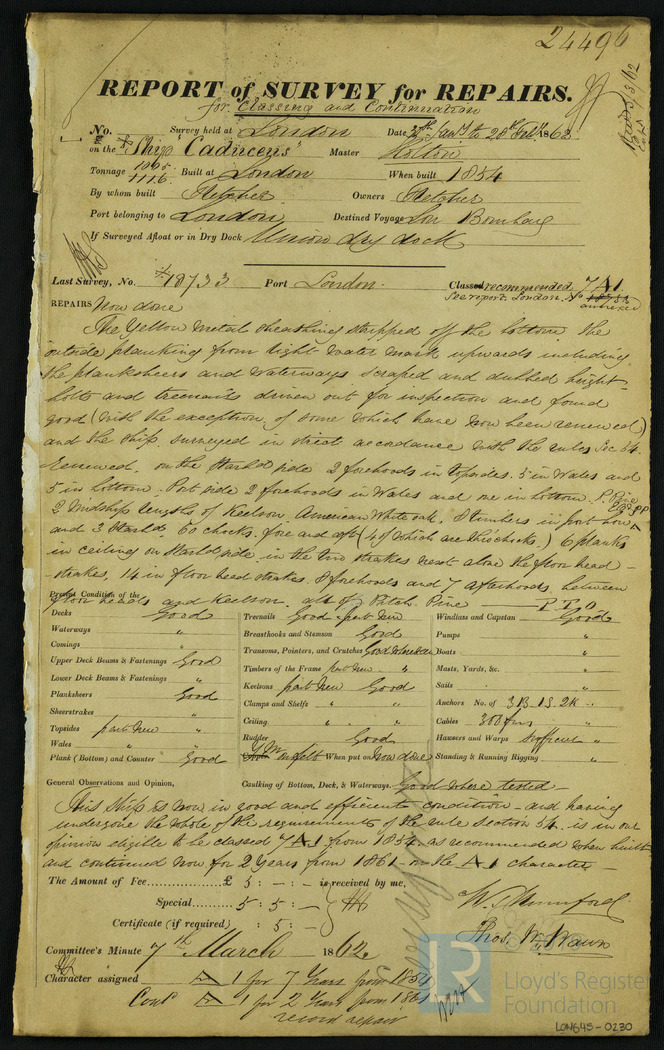 24496
REPORT of SURVEY for REPAIRS.
for Classing and Continuation
No. Survey held at London Date, Jany to 28th Feby 1862
on the Ship "Caduceus" Master
Tonnage 1065 1116 Built at London When built 1854
By whom built Fletcher Owners Fletcher
Port belonging to London Destined Voyage Bombay
If Surveyed Afloat or in Dry Dock Union dry dock
Last Survey, No. 18733 Port London. Classed recommended 7 A1
See report, London, No 18733 annexed
REPAIRS Now done
The Yellow metal sheathing stripped off the bottom the
outside planking from light water mark upwards including
the planksheers and waterways scraped and dubbed bright
bolts and treenails driven out for inspection and found
good (with the exception of some which have now been renewed)
and the ship surveyed in strict accordance with the rules Sec 54.
Renewed, on the Starbd side 2 forehoods in topsides. 5 in Wales and
5 in bottom. Port side 2 forehoods in Wales and one in bottom P. Pine
2 Midship lengths of Keelson American White oak. 8 timbers in port bow
and 3 Starbd. 60 chocks, fore and aft (4 of which are thro chocks.) 6 planks
in ceiling on Starbd side in the two strakes next above the floor head
strakes. 14 in floor head strakes. 8 forehoods and 7 afterhoods between
floor heads and Keelson. all of Pitch Pine — P T O
Present Condition of the
Decks Good Treenails Good part New Windlass and Capstan Good
Waterways " Breasthooks and Stemson Good Pumps "
Comings " Transoms, Pointers, and Crutches Good where seen Boats "
Upper Deck Beams & Fastenings Good Timbers of the Frame part New " Masts, Yards, &c. "
Lower Deck Beams & Fastenings " Keelsons part New Good Sails "
Planksheers Good Clamps and Shelfs " " Anchors No. of 3B. 1S. 2K "
Sheerstrakes " Ceiling " " Cables 300 fms "
Topsides part New " Rudder Good Hawsers and Warps sufficient "
Wales " " Y.M. on felt When put on Now done Standing & Running Rigging "
Plank (Bottom) and Counter Good
General Observations and Opinion, Caulking of Bottom, Deck, & Waterways. Good where tested
This Ship is now in good and efficient condition - and having
undergone the whole of the requirements of the rule section 54. is in our
opinion eligible to be classed 7 A1 from 1854. as recommended when built
and continued now for 2 Years from 1861 - on the A1 character
The Amount of Fee £ 5 : - : - is received by me,
Special 5 : 5 : -
Certificate (if required) : 5 : -
W. S. Mumford
Thos. W. Wawn
Committee's Minute 7th March 1862
Character assigned A 1 for 7 Years from 1854
Contd A 1 for 2 Years from 1861
record repair
Lloyd's Register
Foundation
LON645-0230